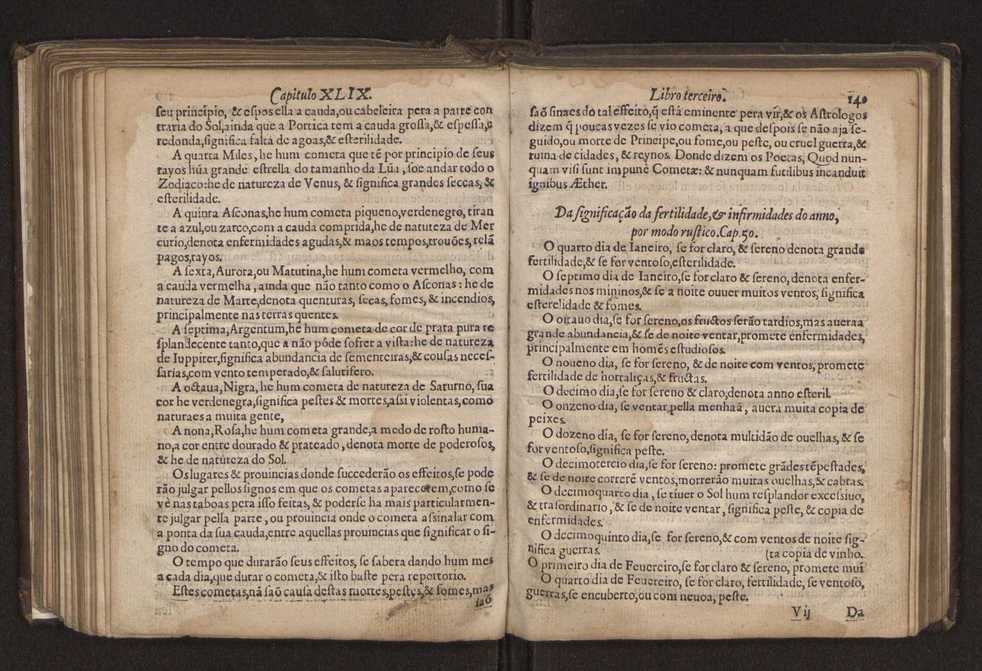 Capitulo XLIX.
seu principio, & espos ella a cauda, ou cabeleira pera a parte con
traria do Sol, ainda que a Portica tem a cauda grossa, & espessa, &
redonda, significa falta de agoas, & esterilidade.
A quarta Miles, he hum cometa que tẽ por principio de seus
rayos hũa grande estrella do tamanho da Lũa, soe andar todo o
Zodiaco: he de natureza de Venus, & significa grandes seccas, &
esterilidade.
A quinta Asconas, he hum cometa piqueno, verdenegro, tiran
te a azul, ou zarco, com a cauda comprida, he de natureza de Mer
curio, denota enfermidades agudas, & maos tempos, trouões, relã
pagos, rayos.
A sexta, Aurora, ou Matutina, he hum cometa vermelho, com
a cauda vermelha, ainda que não tanto como o Asconas: he de
natureza de Marte, denota quenturas, secas, fomes, & incendios,
principalmente nas terras quentes.
A septima, Argentum, he hum cometa de cor de prata pura re
splandecente tanto, que a não pòde sofrer a vista: he de natureza
de Iuppiter, significa abundancia de sementeiras, & cousas neces-
sarias, com vento temperado, & salutifero.
A octaua, Nigra, he hum cometa de natureza de Saturno, sua
cor he verdenegra, significa pestes & mortes, assi violentas, como
naturaes a muita gente,
A nona, Rosa, he hum cometa grande, a modo de rosto huma-
no, a cor entre dourado & prateado, denota morte de poderosos,
& he de natureza do Sol.
Os lugares & prouincias donde succederão os effeitos, se pode
rão julgar pellos signos em que os cometas aparecerem, como se
vè nas taboas pera isso feitas, & poderse ha mais particularmen-
te julgar pella parte, ou prouincia onde o cometa assinalar com
a ponta da sua cauda, entre aquellas prouincias que significar o si-
gno do cometa.
O tempo que durarão seus effeitos, se sabera dando hum mes
a cada dia, que durar o cometa, & isto baste pera reportorio.
Estes cometas, nã saõ causa destas mortes, pestes, & fomes, mas
saõ
Libro terceiro.
140
saõ sinaes do tal effeito, q̃ està eminente pera vir, & os Astrologos
dizem q̃ poucas vezes se vio cometa, a que despois se não aja se-
guido, ou morte de Principe, ou fome, ou peste, ou cruel guerra, &
ruina de cidades, & reynos. Donde dizem os Poetas, Quod nun-
quam visi sunt impunè Cometæ: & nunquam futilibus incanduit
ignibus Æther.
Da significação da fertilidade, & infirmidades do anno,
por modo rustico. Cap. 50.
O quarto dia de Ianeiro, se for claro, & sereno denota grande
fertilidade, & se for ventoso, esterilidade.
O septimo dia de Ianeiro, se for claro & sereno, denota enfer-
midades nos mininos, & se a noite ouuer muitos ventos, significa
esterelidade & fomes.
O oitauo dia, se for sereno, os fructos serão tardios, mas auera a
grande abundancia, & se de noite ventar, promete enfermidades,
principalmente em homẽs estudiosos.
O noueno dia, se for sereno, & de noite com ventos, promete
fertilidade de hortaliças, & fructas.
O decimo dia, se for sereno & claro, denota anno esteril.
O onzeno dia, se ventar pella menhaã, auera muita copia de
peixes.
O dozeno dia, se for sereno, denota multidão de ouelhas, & se
for ventoso, significa peste.
O decimotercio dia, se for sereno: promete grãdes tẽpestades,
& se de noite correrẽ ventos, morrerão muitas ouelhas, & cabras.
O decimoquarto dia, se tiuer o Sol hum resplandor excessiuo,
& trasordinario, & se de noite ventar, significa peste, & copia de
enfermidades.
O decimoquinto dia, se for sereno, & com ventos de noite sig-
nifica guerras. (ta copia de vinho.
O primeiro dia de Feuereiro, se for claro & sereno, promete mui
O quarto dia de Feuereiro, se for claro, fertilidade, se ventoso,
guerras, se encuberto, ou com neuoa, peste.
V ij Da